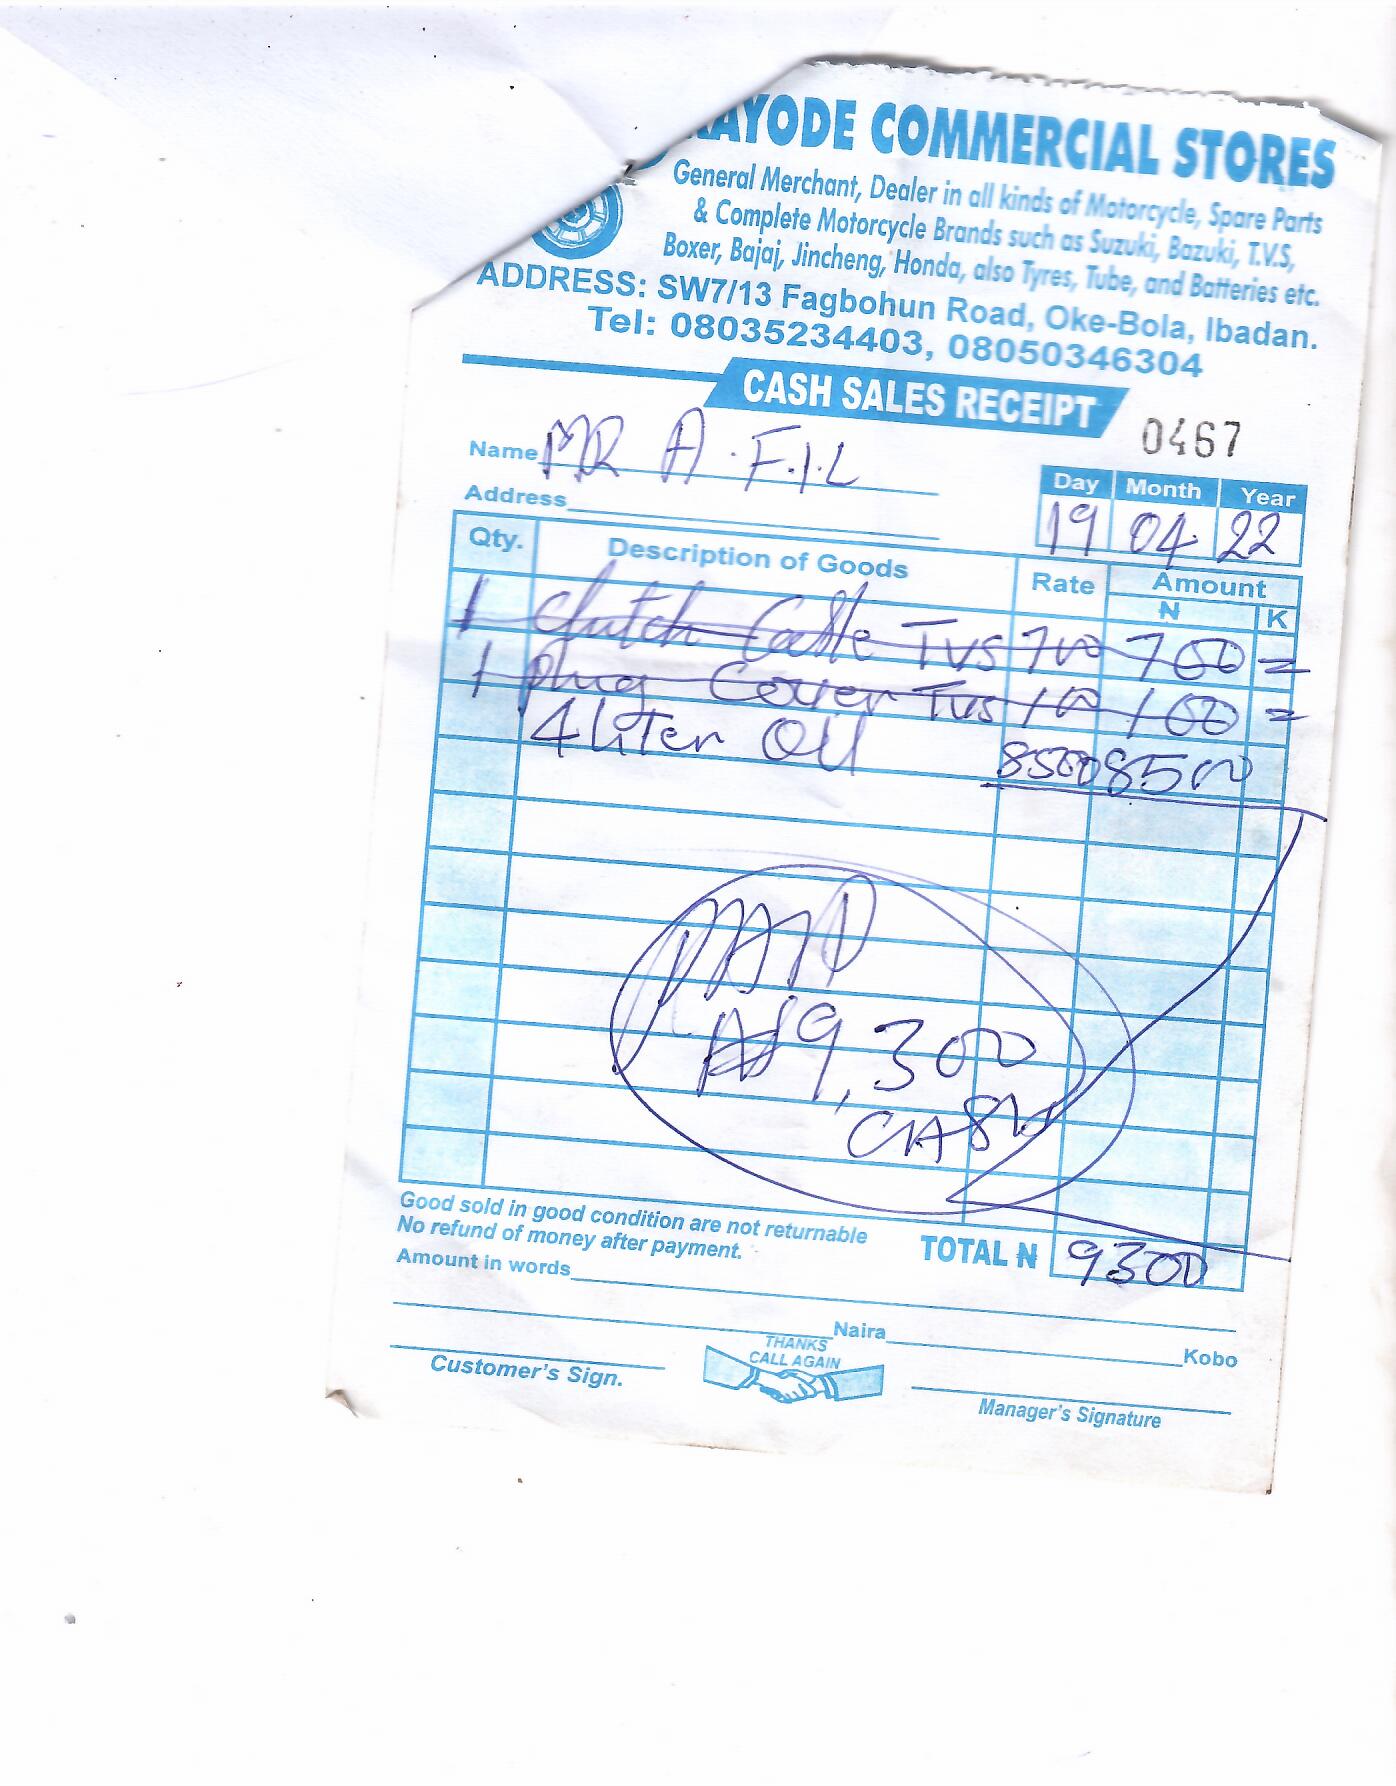 AYODE COMMERCIAL STORES
General Merchant, Dealer in all kinds of Motorcycle, Spare Parts
& Complete Motorcycle Brands such as Suzuki, Bazuki, T.V.S,
Boxer, Bajaj, Jincheng, Honda, also Tyres, Tube, and Batteries etc.
ADDRESS: SW7/13 Fagbohun Road, Oke-Bola, Ibadan.
Tel: 08035234403, 08050346304
CASH SALES RECEIPT
0467
Name MR A.F.I.L
Address
Day Month Year
19 04 22
Qty. Description of Goods Rate Amount
₦ K
1 Clutch Cable TVS 700 700 =
1 plug Cover TVS 100 100 =
4 liter Oil 8500 8500
PAID
₦9,300
CASH
Good sold in good condition are not returnable
No refund of money after payment.
TOTAL ₦ 9300
Amount in words
Naira Kobo
THANKS
CALL AGAIN
Customer's Sign.
Manager's Signature